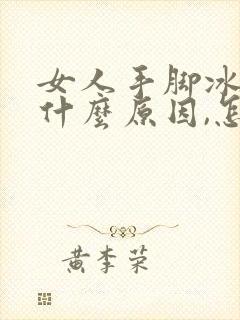 女人手脚冰
什麽原因,怎
黄李荣